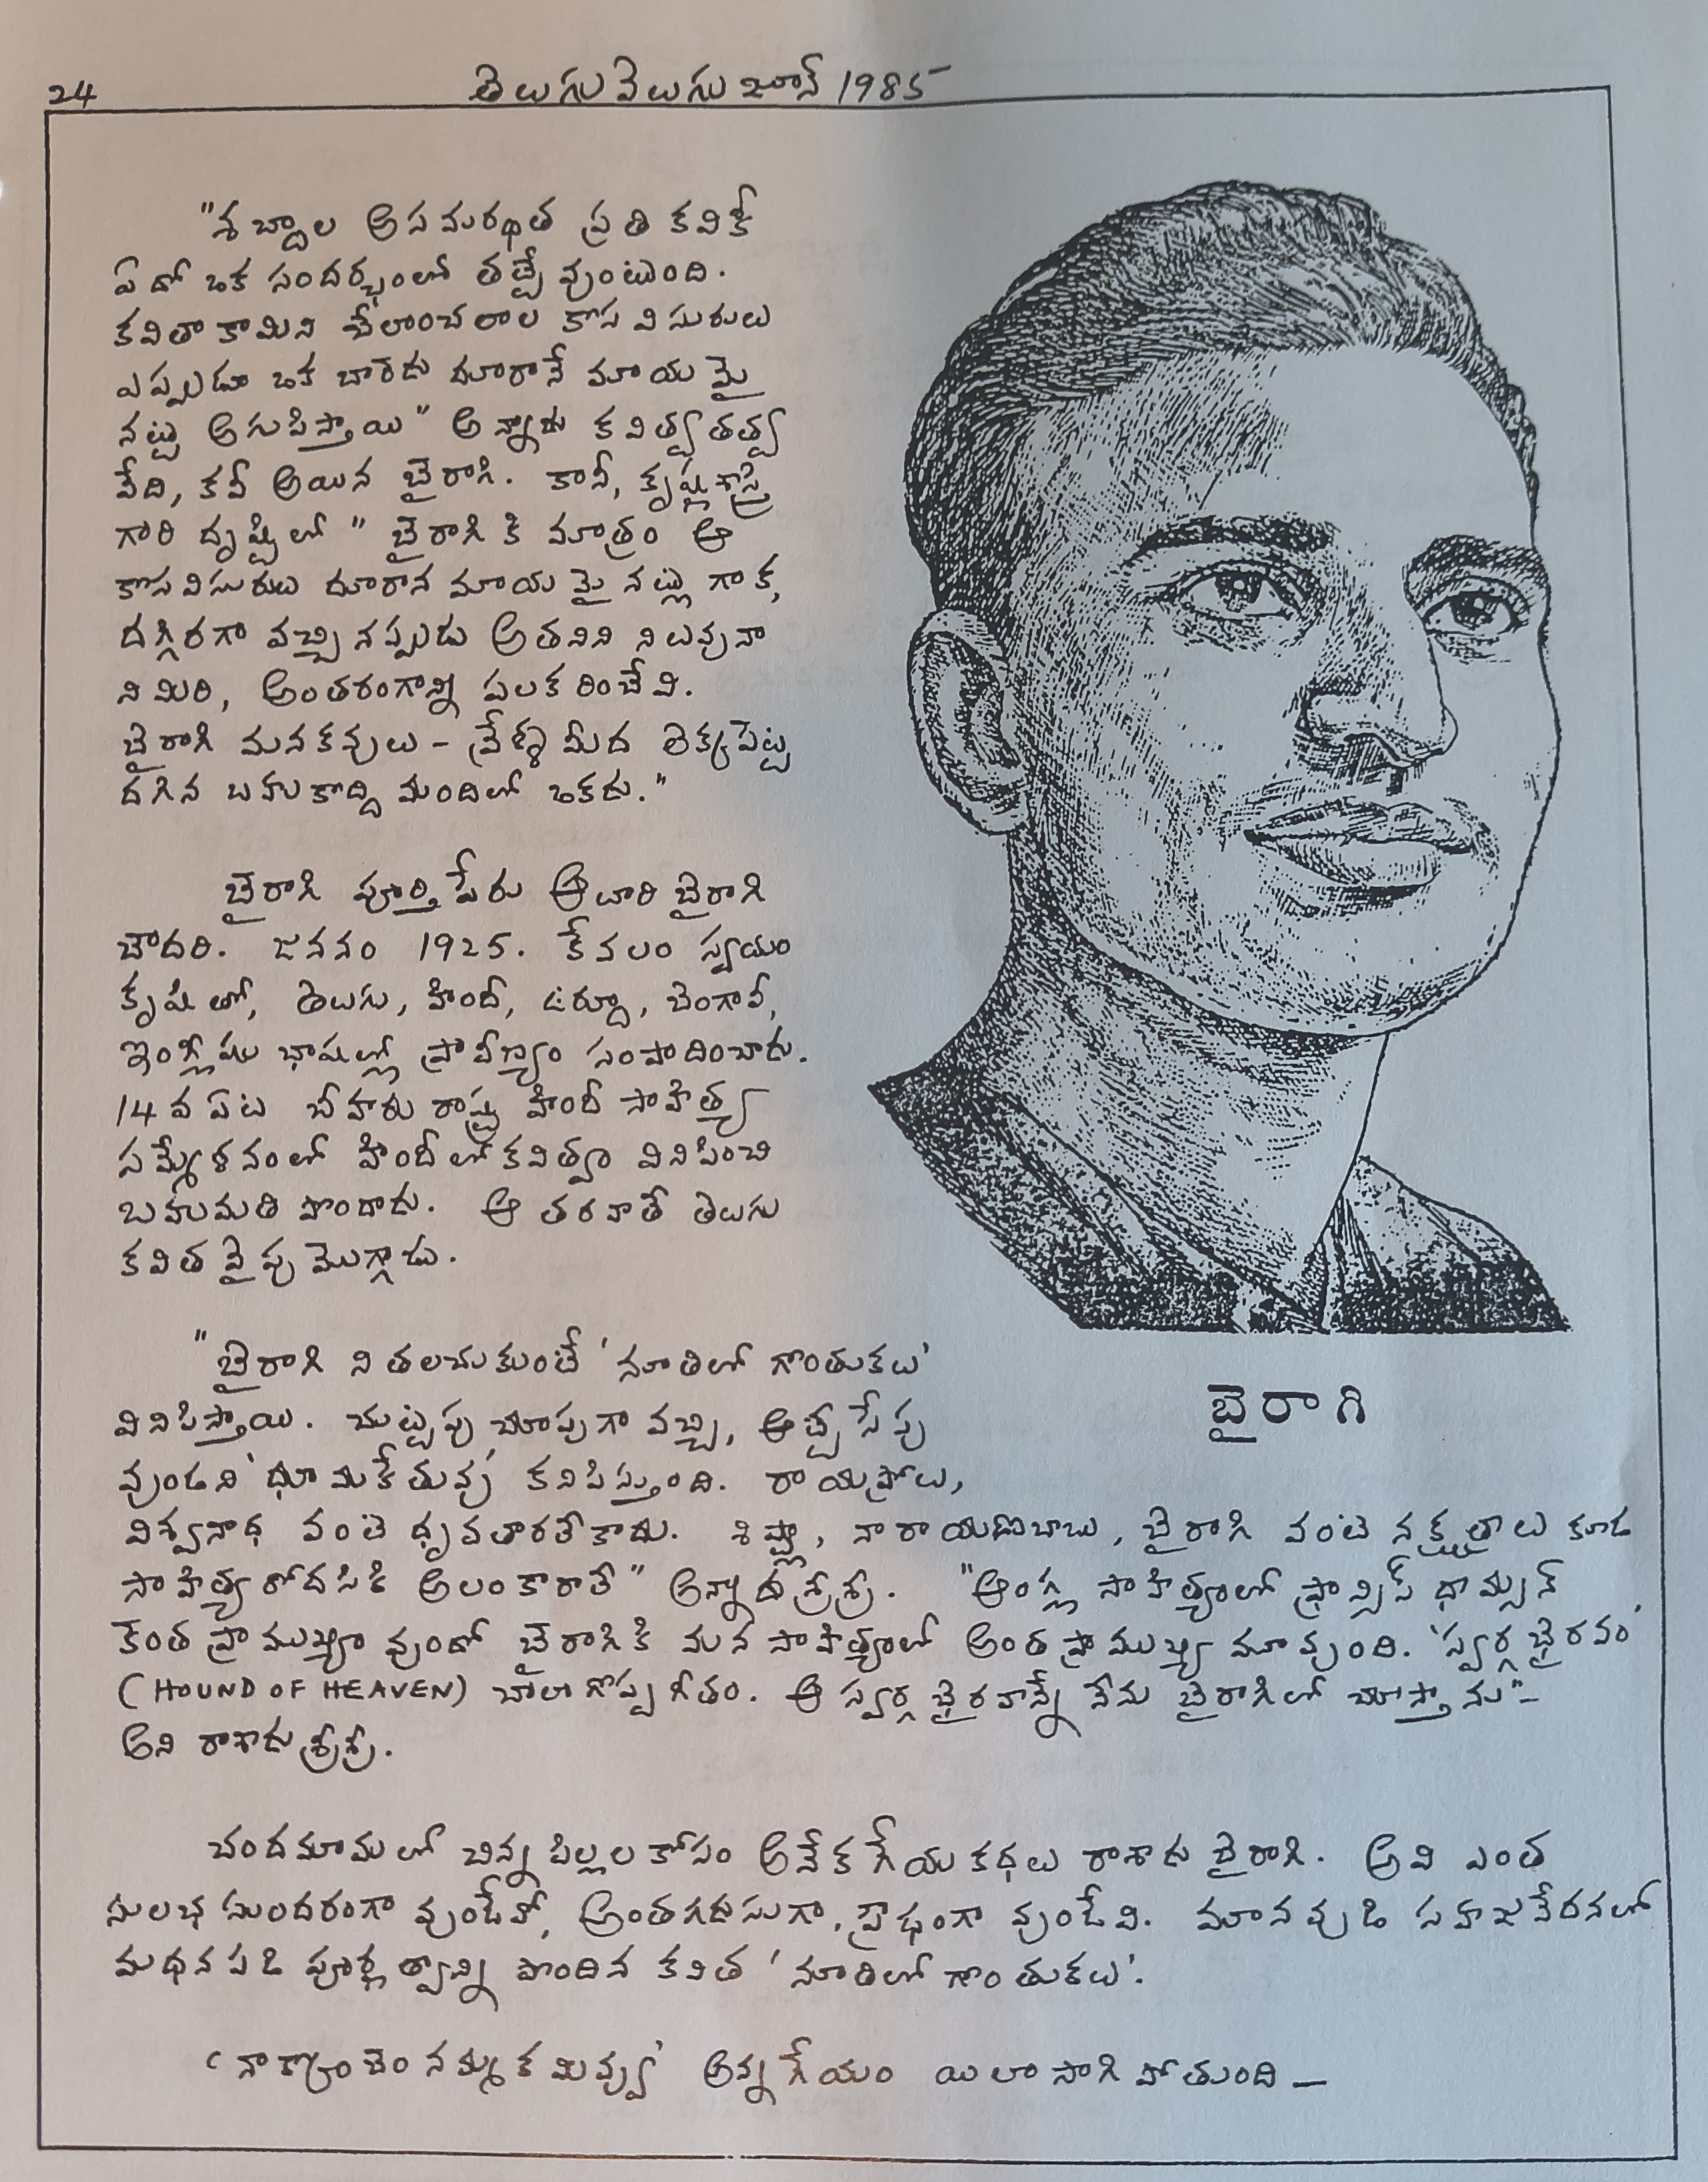 24
తెలుగు వెలుగు జూన్ 1985
"శబ్దాల అసమర్థత ప్రతి కవికీ
ఏదో ఒక సందర్భంలో తట్టే వుంటుంది.
కవితా కామిని చేలాంచలాల కొస విసురులు
ఎప్పుడూ ఒక బారెడు దూరానే మాయమై
నట్టు అగుపిస్తాయి" అన్నాడు కవిత్వతత్వ
వేది, కవీ అయిన బైరాగి. కానీ, కృష్ణశాస్త్రి
గారి దృష్టిలో "బైరాగికి మాత్రం ఆ
కొసవిసురులు దూరాన మాయమైనట్లు గాక,
దగ్గిరగా వచ్చినప్పుడు అతనిని నిలువునా
నిమిరి, అంతరంగాన్ని పలకరించేవి.
బైరాగి మనకవులు - వ్రేళ్ళమీద లెక్కపెట్ట
దగిన బహుకొద్ది మందిలో ఒకడు."
బైరాగి పూర్తిపేరు ఆలూరి బైరాగి
చౌదరి. జననం 1925. కేవలం స్వయం
కృషితో, తెలుగు, హిందీ, ఉర్దూ, బెంగాలీ,
ఇంగ్లీషు భాషల్లో ప్రావీణ్యం సంపాదించాడు.
14వ ఏట బీహారు రాష్ట్ర హిందీ సాహిత్య
సమ్మేళనంలో హిందీలో కవిత్వం వినిపించి
బహుమతి పొందాడు. ఆ తరవాతే తెలుగు
కవిత వైపు మొగ్గాడు.
"బైరాగిని తలచుకుంటే 'నూతిలో గొంతుకలు'
వినిపిస్తాయి. చుట్టపు చూపుగా వచ్చి, ఆట్టే సేపు
వుండని 'ధూమకేతువు' కనిపిస్తుంది. రాయప్రోలు,
విశ్వనాథ వంటి ధృవతారలేకాదు. శిష్ట్లా, నారాయణబాబు, బైరాగి వంటి నక్షత్రాలు కూడ
సాహిత్య రోదసికి అలంకారాలే" అన్నాడు శ్రీశ్రీ. "ఆంగ్ల సాహిత్యంలో ఫ్రాన్సిస్ థామ్సన్
కెంత ప్రాముఖ్యం వుందో బైరాగికి మన సాహిత్యంలో అంత ప్రాముఖ్యమూ వుంది. 'స్వర్గ భైరవం'
(HOUND OF HEAVEN) చాలా గొప్ప గీతం. ఆ స్వర్గ భైరవాన్నే నేను బైరాగిలో చూస్తాను"-
అని రాశాడు శ్రీశ్రీ.
బైరాగి
చందమామలో చిన్న పిల్లల కోసం అనేక గేయ కథలు రాశాడు బైరాగి. అవి ఎంత
సులభ సుందరంగా వుండేవో, అంత గడుసుగా, ప్రౌఢంగా వుండేవి. మానవుడి సహజ వేదనలో
మథనపడి పూర్ణత్వాన్ని పొందిన కవిత 'నూతిలో గొంతుకలు'.
'నాక్కొంచెం నమ్మకమివ్వు' అన్న గేయం యిలా సాగిపోతుంది —